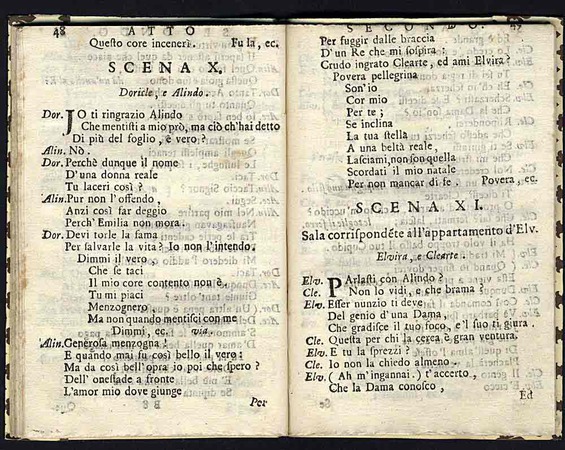 48 ATTO
Questo core incenerì. Fu la, ec.
SCENA X.
Doricle, e Alindo.
Dor. IO ti ringrazio Alindo
Che mentisti a mio prò, ma ciò ch'hai detto
Di più del foglio, è vero?
Alin. Nò.
Dor. Perchè dunque il nome
D'una donna reale
Tu laceri così?
Alin. Pur non l'offendo,
Anzi così far deggio
Perch'Emilia non mora.
Dor. Devi torle la fama
Per salvarle la vita? Io non l'intendo.
Dimmi il vero,
Che se taci
Il mio core contento non è,
Tu mi piaci
Menzognero
Ma non quando mentisci con me
Dimmi, ec. via.
Alin. Generosa menzogna!
E quando mai fu così bello il vero:
Ma da così bell'opra io poi che spero?
Dell'onestade a fronte
L'amor mio dove giunge
Per
SECONDO. 49
Per fuggir dalle braccia
D'un Re che mi sospira:
Crudo ingrato Clearte, ed ami Elvira?
Povera pellegrina
Son'io
Cor mio
Per te;
Se inclina
La tua stella
A una beltà reale,
Lasciami, non son quella
Scordati il mio natale
Per non mancar di fe. Povera, ec.
SCENA XI.
Sala corrispondẽte all'appartamento d'Elv.
Elvira, e Clearte.
Elv. PArlasti con Alindo?
Cle. Non lo vidi, e che brama?
Elv. Esser nunzio ti deve
Del genio d'una Dama,
Che gradisce il tuo foco, e'l suo ti giura.
Cle. Questa per chi la cerca è gran ventura.
Elv. E tu la sprezzi?
Cle. Io non la chiedo almeno.
Elv. (Ah m'ingannai.) t'accerto,
Che la Dama conosco,
Ed